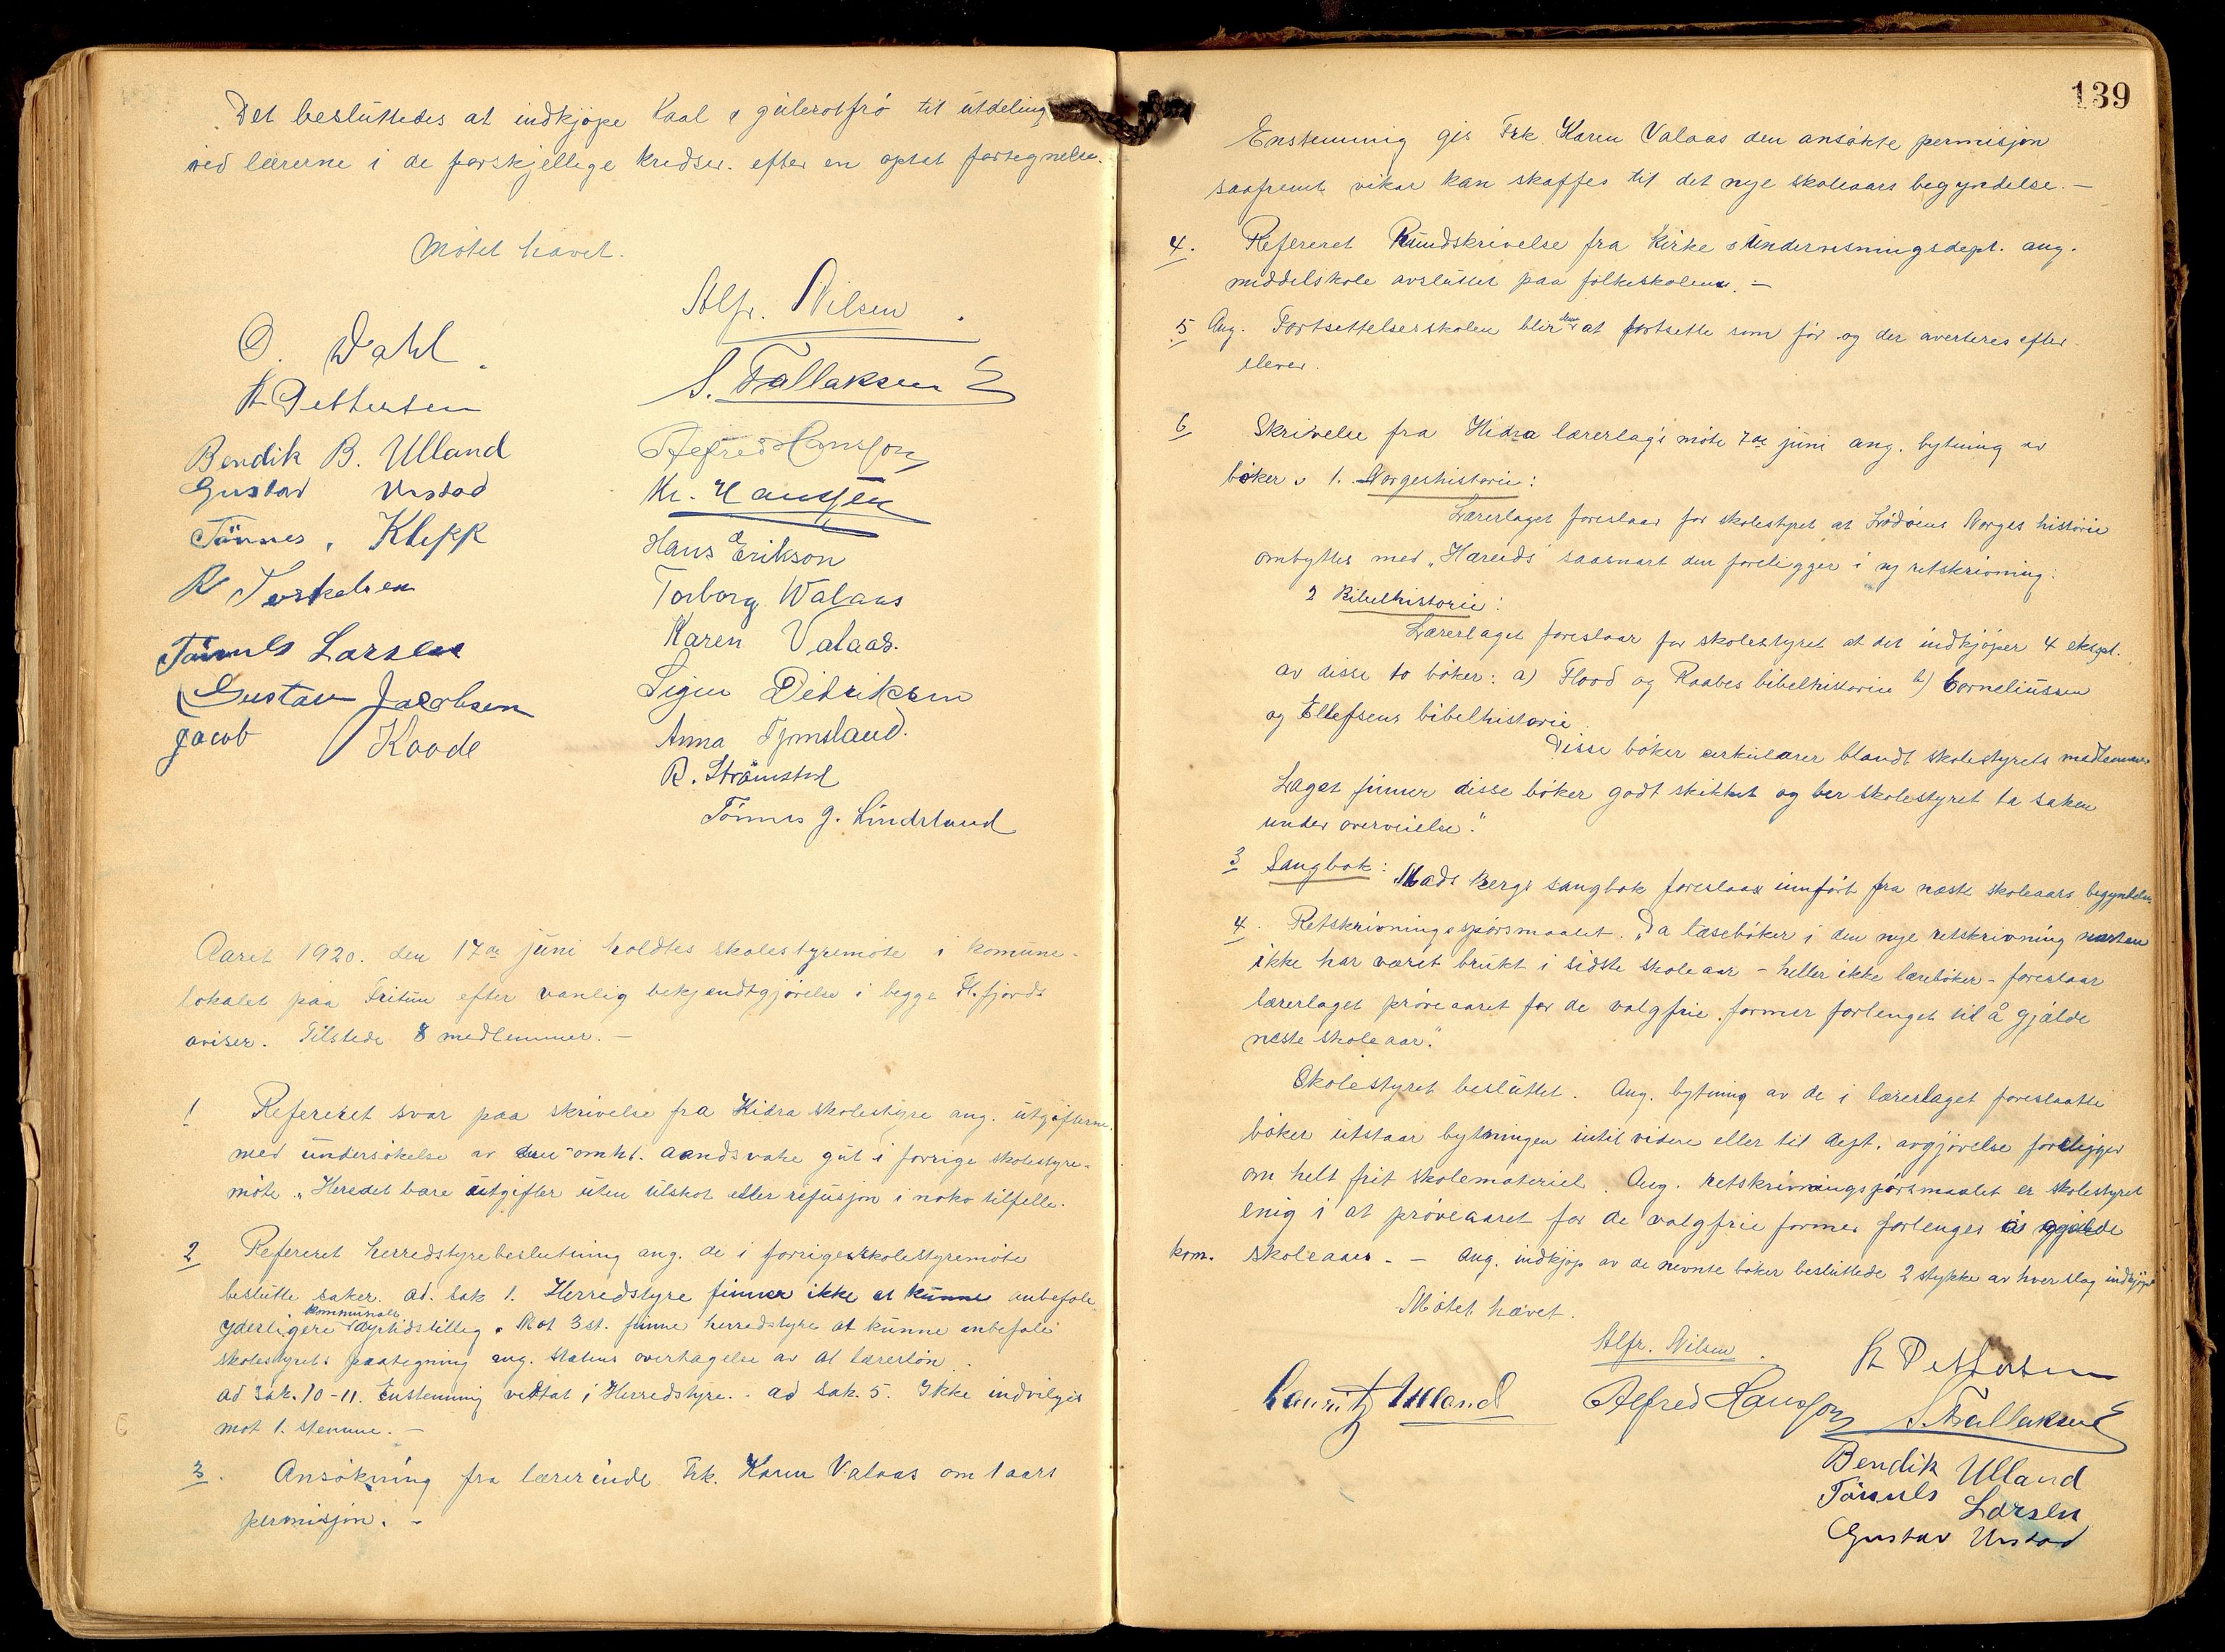 Det besluttedes at indkjøpe Kaal & gulerotfrø til utdeling
ved lærerne i de forskjellige kredser. efter en optat fortegnelse.
Møtet hævet.
O. Dahl.
A Pettersen
Bendik B. Ulland
Gustav Urstad
Tønnes, Klepp
R Terkelsen
Tønnes Larsen
Gustav Jacobsen
Jacob Koode
Alfr. Nilsen.
S. Tallaksen
Alfred Hansson
Kr. Hanssen
Hans Erikson
Torborg Walaas
Karen Valaas.
Signe Didriksen
Anna Tjomsland.
R. Strømstad
Tønnes J. Lindeland
Aaret 1920. den 17de juni holdtes skolestyremøte i komune-
lokalet paa Fritun efter vanlig bekjendtgjørelse i begge Fl.fjords
aviser. Tilstede 8 medlemmer. —
1 Refereret svar paa skrivelse fra Hidra skolestyre ang. utgifterne
med undersøkelse av den omht. aandsvake gut i forrige skolestyre-
møte. „Heredet bære utgifter uten tilskot eller refusjon i noko tilfelle.
2 Refereret herredstyrebeslutning ang. de i forrige skolestyremøte
beslutte saker. ad. sak 1. Herredstyre finner ikke at kunne anbefale
yderligere kommunale dyrtidstillæg. Mot 3 st. finne herredstyre at kunne anbefale
skolestyrets paategning ang. Statens overtagelse av al lærerløn.
ad sak. 10-11. Enstemmig vedtat i Herredstyre. - ad sak. 5. Ikke indvilges
mot 1. stemme. —
3. Ansøkning fra lærerinde Frk. Karen Valaas om 1 aars
permisjon. -
139
Enstemmig gis Frk. Karen Valaas den ansøkte permisjon
saafremt vikar kan skaffes til det nye skoleaars begyndelse. —
4. Refereret Rundskrivelse fra Kirke & Undervisningsdept. ang.
middelskole avsluttet paa folkeskolens. —
5 Ang. Fortsettelsesskolen blir at fortsette som før og der averteres efter
elever.
6 Skrivelse fra Hidra lærerlags møte 7de juni ang. bytning av
bøker. 1. Norgeshistorie:
Lærerlaget foreslaar for skolestyret at Lødøens Norges historie
ombyttes med „Hæreids" saasnart den foreligger i ny retskrivning.
2 Bibelhistorie:
Lærerlaget foreslaar for skolestyret at det indkjøper 4 ekspl.
av disse to bøker: a) Flood og Raabes bibelhistorie b) Corneliussen
og Ellefsens bibelhistorie.
Disse bøker cirkulærer blandt skolestyrets medlemmer
Laget finner disse bøker godt skikket og ber skolestyret ta saken
under overveielse."
3 Sangbok: Mads Bergs sangbok foreslaas innført fra næste skoleaars begyndelse
4. Retskrivningsspørsmaalet. „Da læsebøker i den nye retskrivning næsten
ikke har været brukt i sidste skoleaar - heller ikke lærebøker - foreslaar
lærerlaget prøveaaret for de valgfrie former forlenget til å gjælde
neste skoleaar."
Skolestyret besluttet. Ang. bytning av de i lærerlaget foreslaatte
bøker utstaar bytningen intil videre eller til dept. avgjørelse foreligger
om helt frit skolemateriel. Ang. retskrivningspørsmaalet er skolestyret
enig i at prøveaaret for de valgfrie former forlenges at gjælde
kom. skoleaar. — Ang. indkjøp av de nevnte bøker besluttede 2 stykke av hver slag indkjøpt
Møtet hævet.
Alfr. Nilsen.
A Pettersen
Lauritz Ulland
Alfred Hansson
S. Tallaksen
Bendik Ulland
Tønnes Larsen
Gustav Urstad